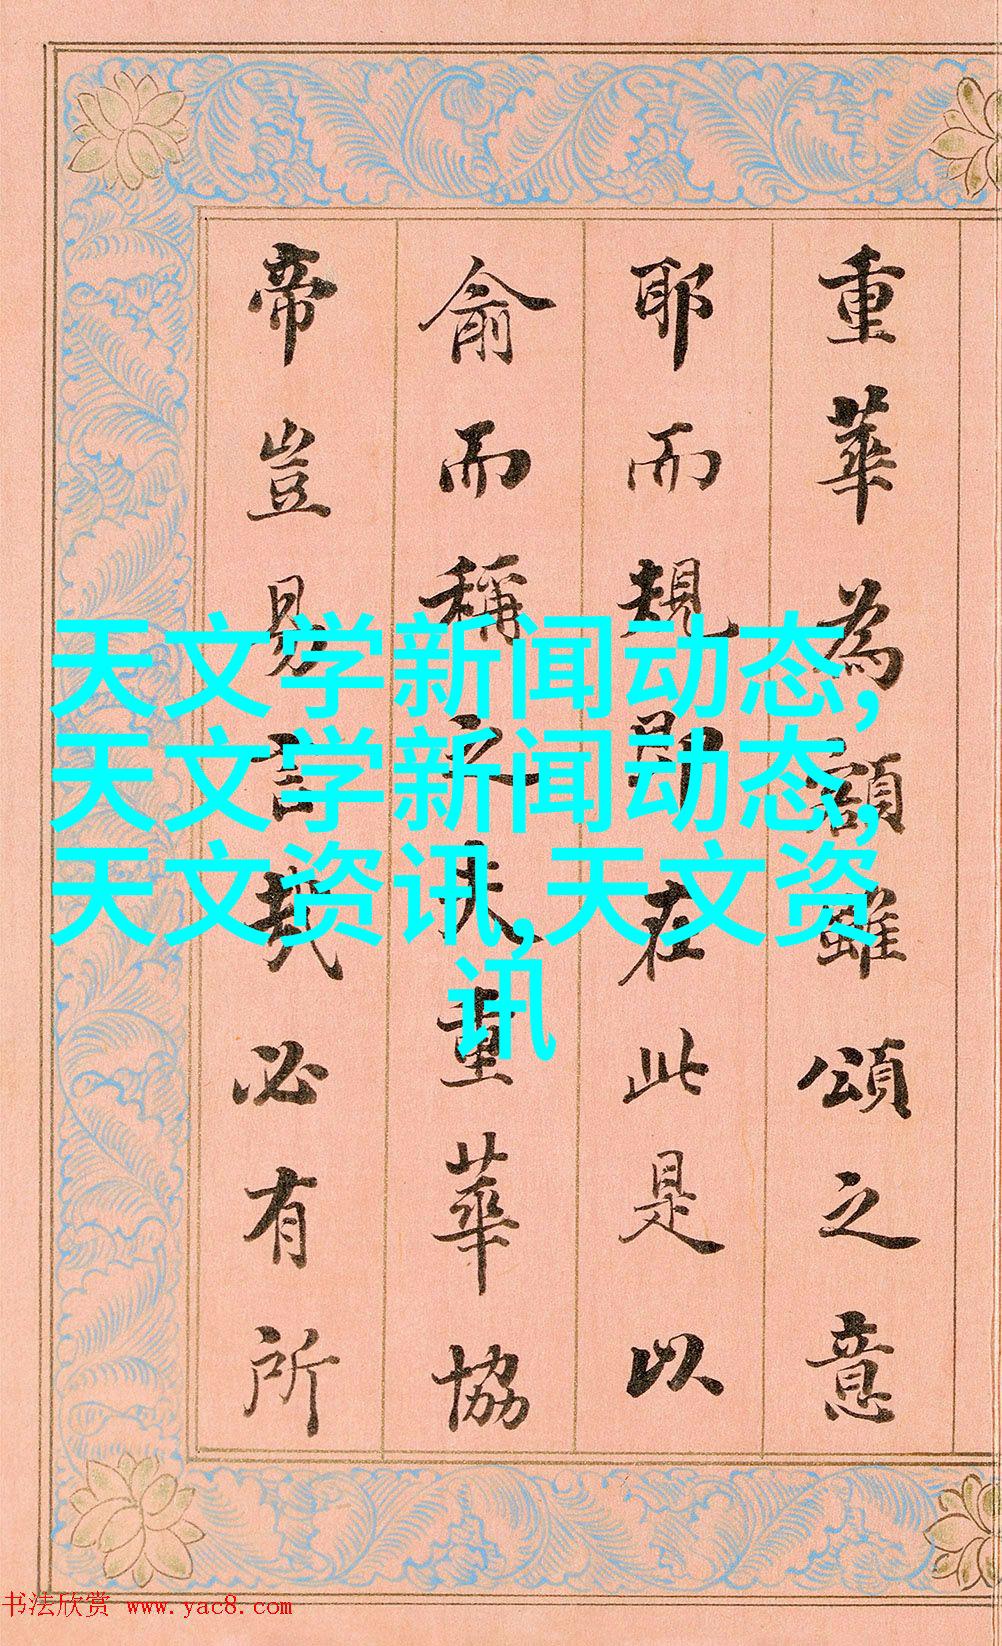 重華為額雖頌之意
耶而規即在此是以
俞而稱之夫重華協
帝豈易言哉必有所
天文学新闻动态,
天文学新闻动态,
天文资讯,天文资
讯
书法欣赏 www.yac8.com